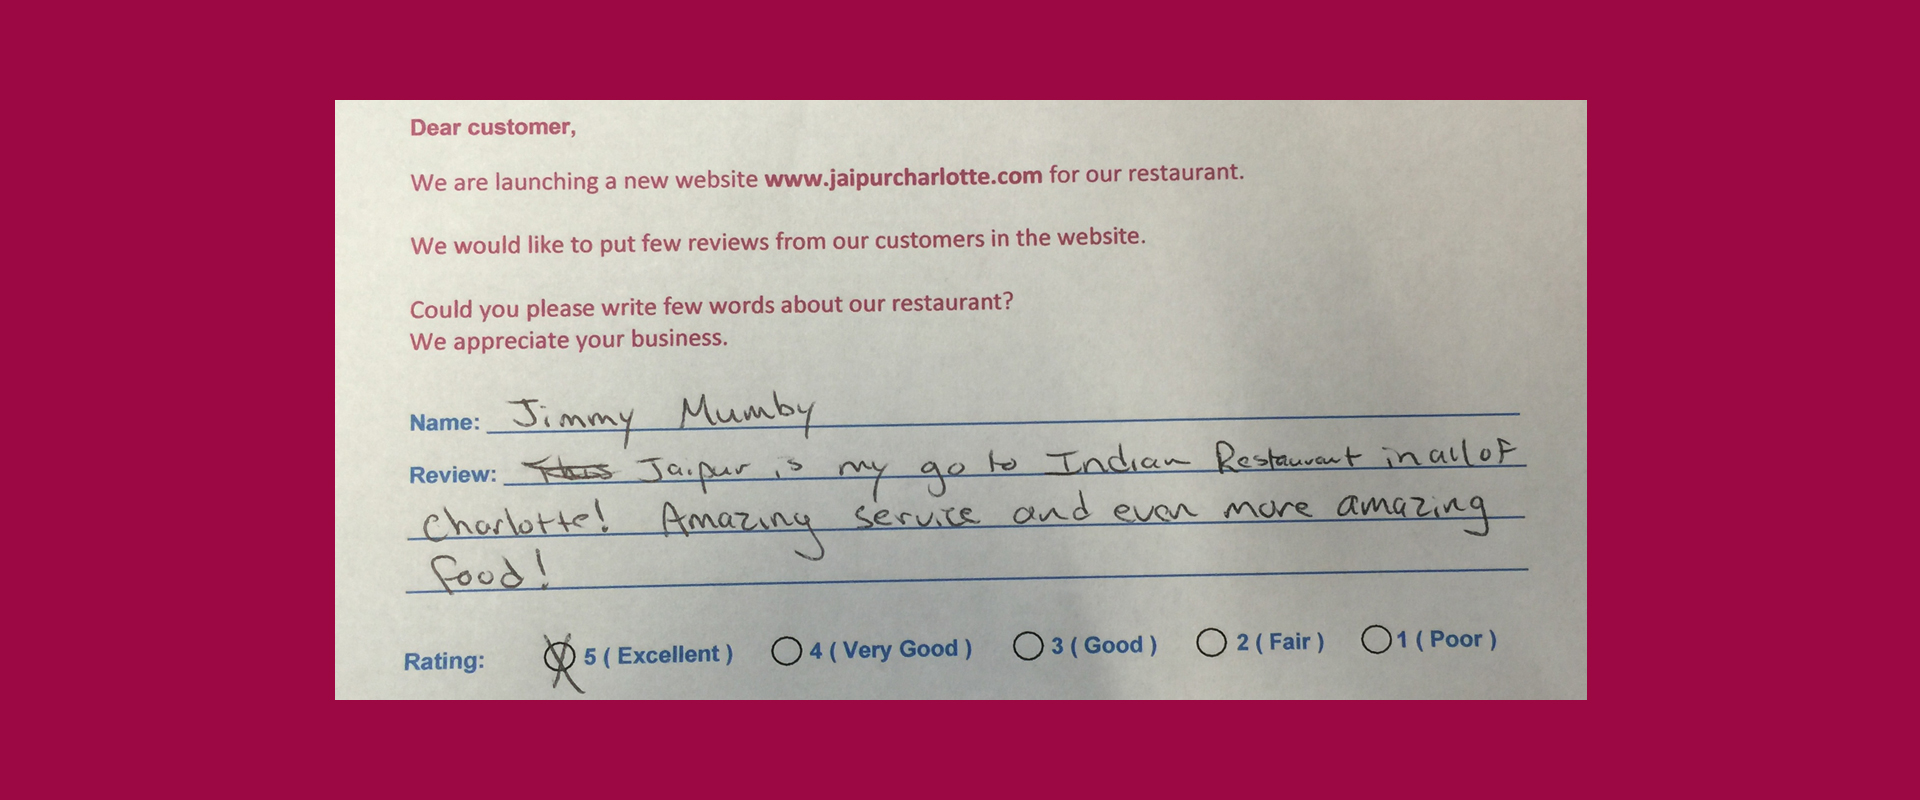 Dear customer,
We are launching a new website www.jaipurcharlotte.com for our restaurant.
We would like to put few reviews from our customers in the website.
Could you please write few words about our restaurant?
We appreciate your business.
Name: Jimmy Mumby
Review: Jaipur is my go to Indian Restaurant in all of
Charlotte! Amazing service and even more amazing
food!
Rating: 5 ( Excellent ) 4 ( Very Good ) 3 ( Good ) 2 ( Fair ) 1 ( Poor )